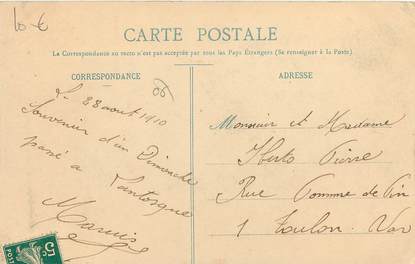 10 €
CARTE POSTALE
La Correspondance au recto n'est pas acceptée par tous les Pays Étrangers (Se renseigner à la Poste)
CORRESPONDANCE
06
Le 28 aout 1910
Souvenir d'un Dimanche
passé a Lantosque
Marius
ADRESSE
Monsieur et Madame
Pierre
Rue Pomme de Pin
1 Toulon. Var
5c